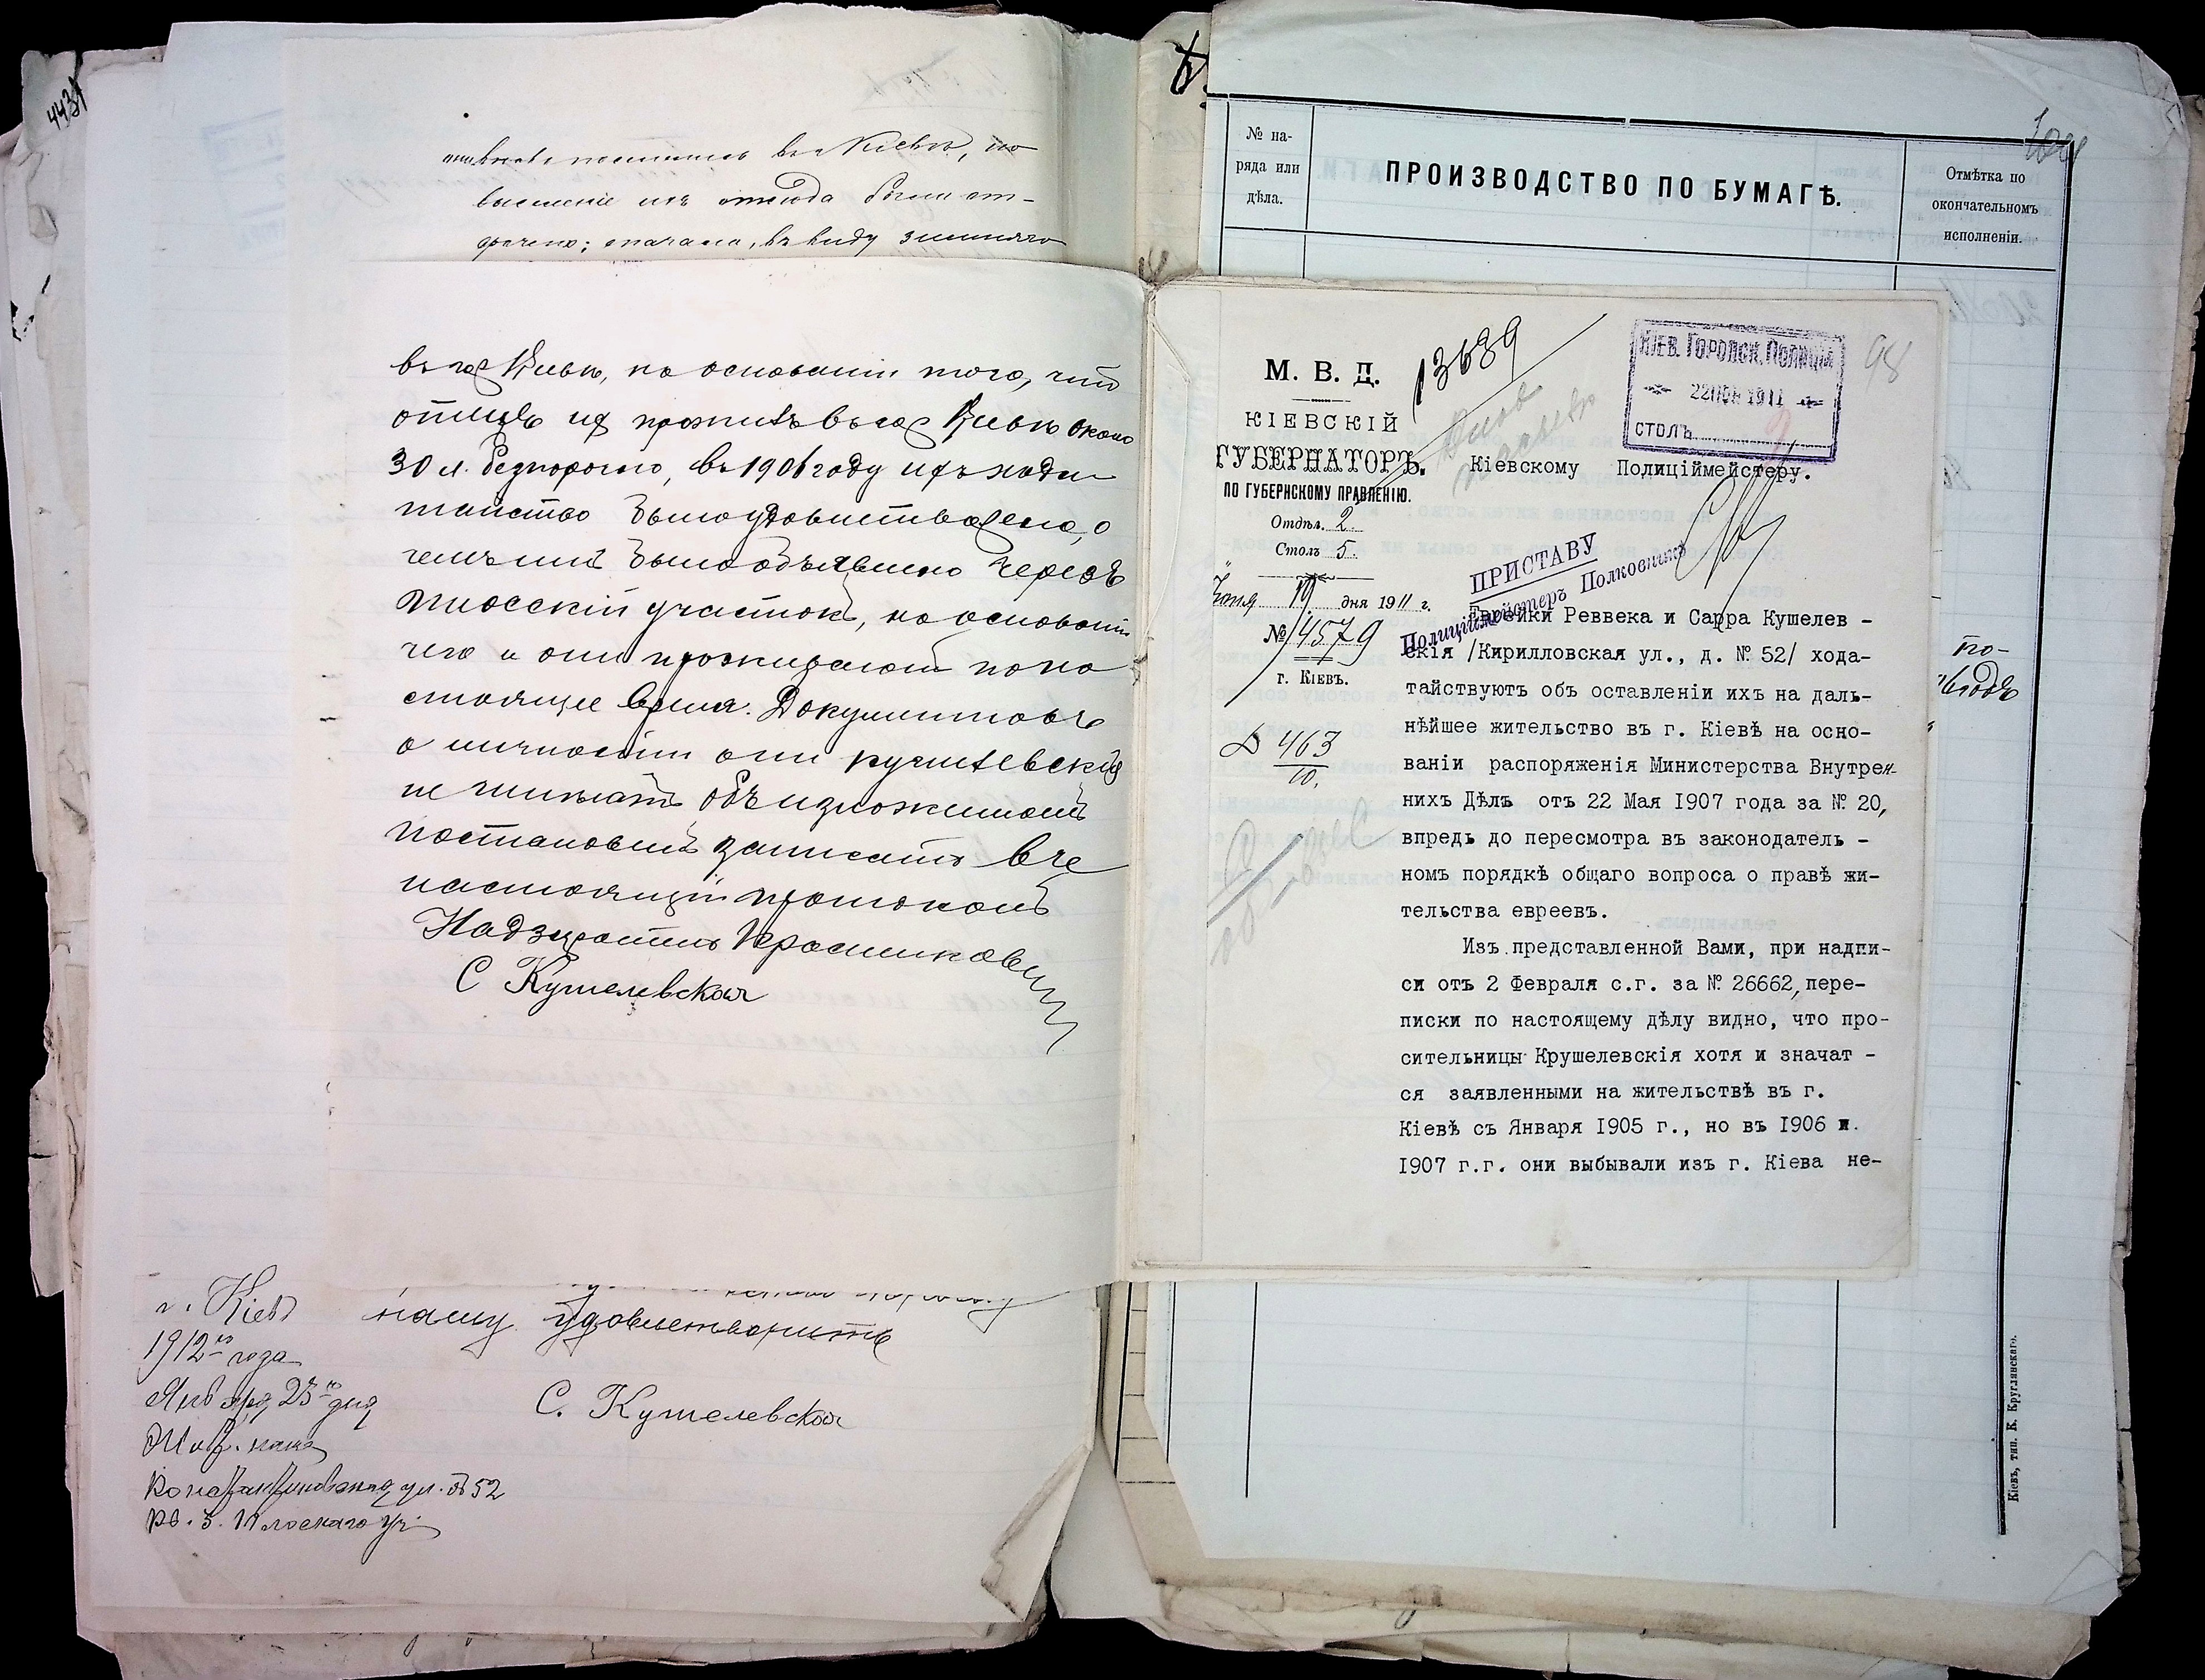 443
въ Кіевѣ, но
выселеніе изъ отсюда были от-
срочено; сначала, въ виду зимняго
въ гор Кіевѣ, на основаніи того, что
отецъ их прожилъ въ гор Кіевѣ около
30 л. безпорочно, въ 1906 году ихъ хода
тайство было удовлетворено, о
чемъ имъ было объявлено черезъ
Плосскій участокъ, на основаніи
чего и они проживаютъ по на
стоящее время. Документовъ
о личности они кушелевскія
не имѣютъ объ изложенномъ
постановилъ записать въ
настоящій протоколъ
Надзиратель
С Кушелевская
нашу удовлетворить
г. Кіевъ
1912го года
Января 25го дня
Жит. наше
Константиновская ул. д 52
кв. 5. Плоскаго уч.
С. Кушелевская
№ на-
ряда или
дѣла.
ПРОИЗВОДСТВО ПО БУМАГѢ.
Отмѣтка по
окончательномъ
исполненіи.
М. В. Д.
КІЕВСКІЙ
ГУБЕРНАТОРЪ.
ПО ГУБЕРНСКОМУ ПРАВЛЕНІЮ.
Отдѣл. 2.
Столъ 5.
Іюня 19 дня 1911 г.
№ 14579
г. КІЕВЪ.
463
10.
13689
КІЕВ. ГОРОДСК. ПОЛИЦІЯ
22 ІЮН 1911
СТОЛЪ
98
Кіевскому Полиціймейстеру.
ПРИСТАВУ
Полиціймейстеръ Полковникъ
Еврейки Реввека и Сарра Кушелев -
скія /Кирилловская ул., д. № 52/ хода-
тайствуютъ объ оставленіи ихъ на даль-
нѣйшее жительство въ г. Кіевѣ на осно-
ваніи распоряженія Министерства Внутрен-
нихъ Дѣлъ отъ 22 Мая 1907 года за № 20,
впредь до пересмотра въ законодатель -
номъ порядкѣ общаго вопроса о правѣ жи-
тельства евреевъ.
Изъ представленной Вами, при надпи-
си отъ 2 Февраля с.г. за № 26662, пере-
писки по настоящему дѣлу видно, что про-
сительницы Крушелевскія хотя и значат -
ся заявленными на жительствѣ въ г.
Кіевѣ съ Января 1905 г., но въ 1906 и
1907 г.г. они выбывали изъ г. Кіева не-
по-
Кіевъ, тип. К. Круглянскаго.